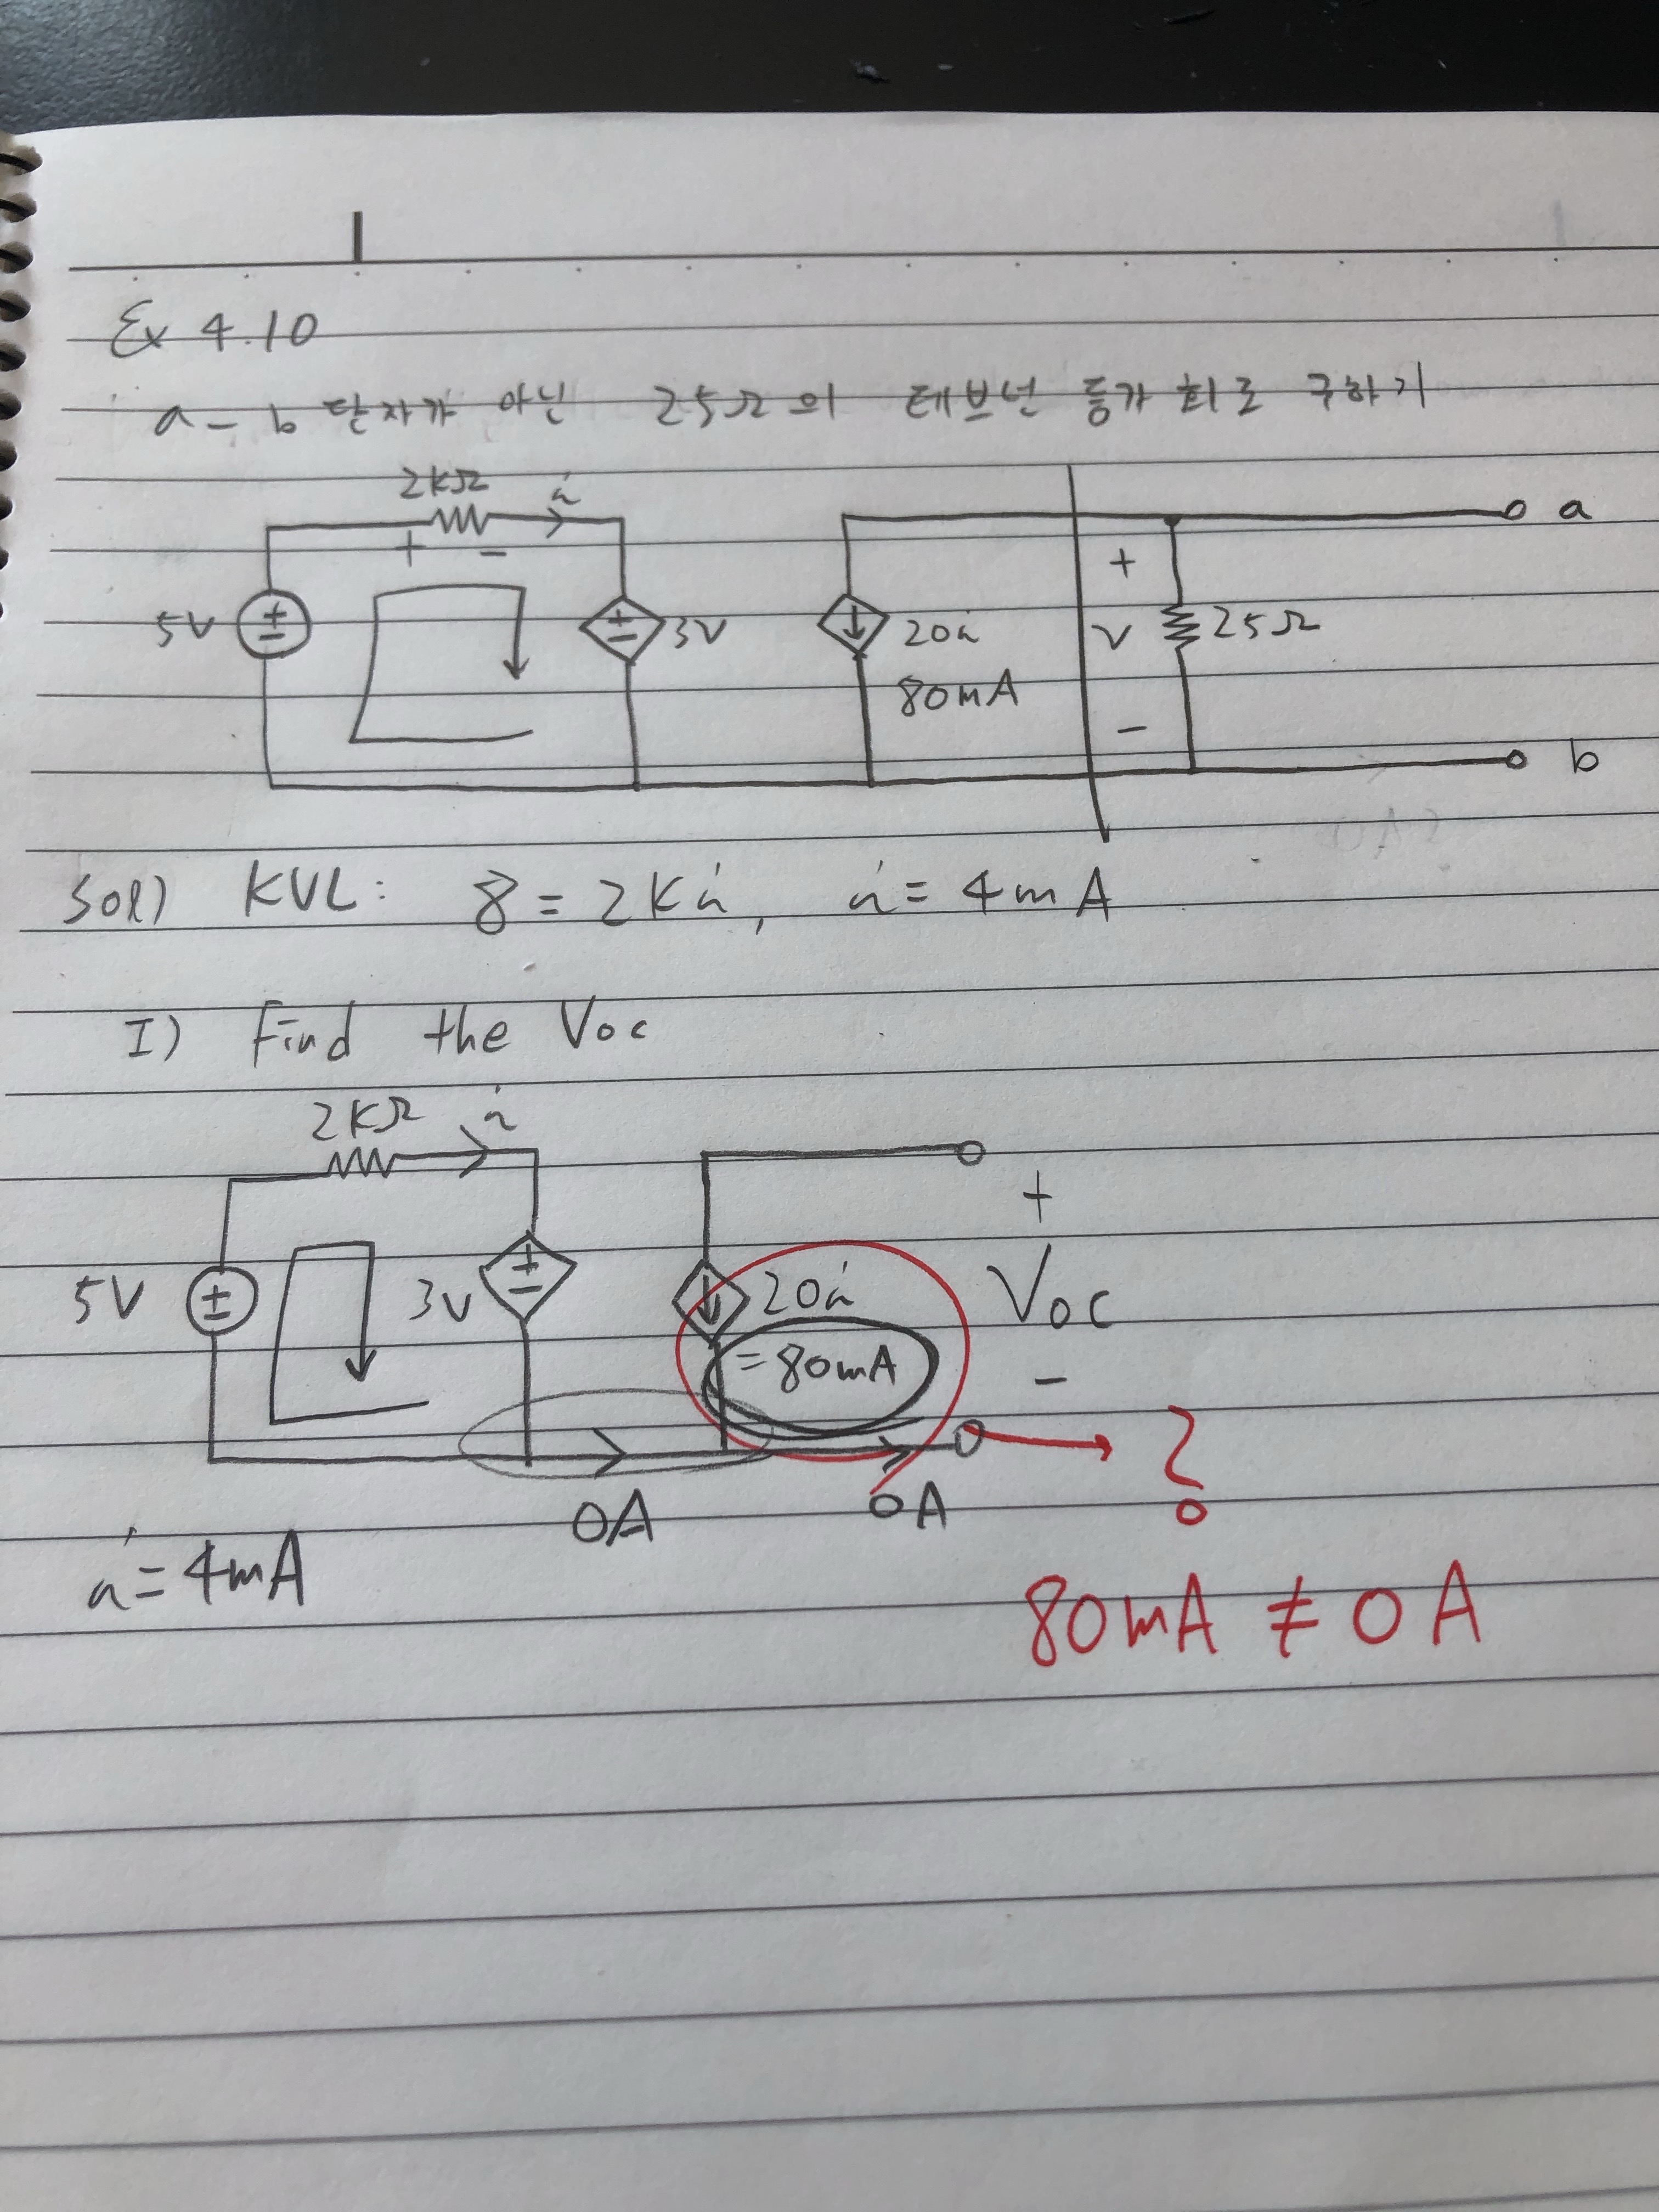 Ex 4.10
a - b 단자가 아닌 25Ω의 테브넌 등가 회로 구하기
2KΩ i
+ -
a
5V
3V
20i
80mA
+
V
-
25Ω
b
Sol) KVL: 8 = 2Ki, i = 4mA
I) Find the Voc
2KΩ i
5V
3V
20i
=80mA
+
Voc
-
0A
0A
?
i=4mA
80mA ≠ 0A